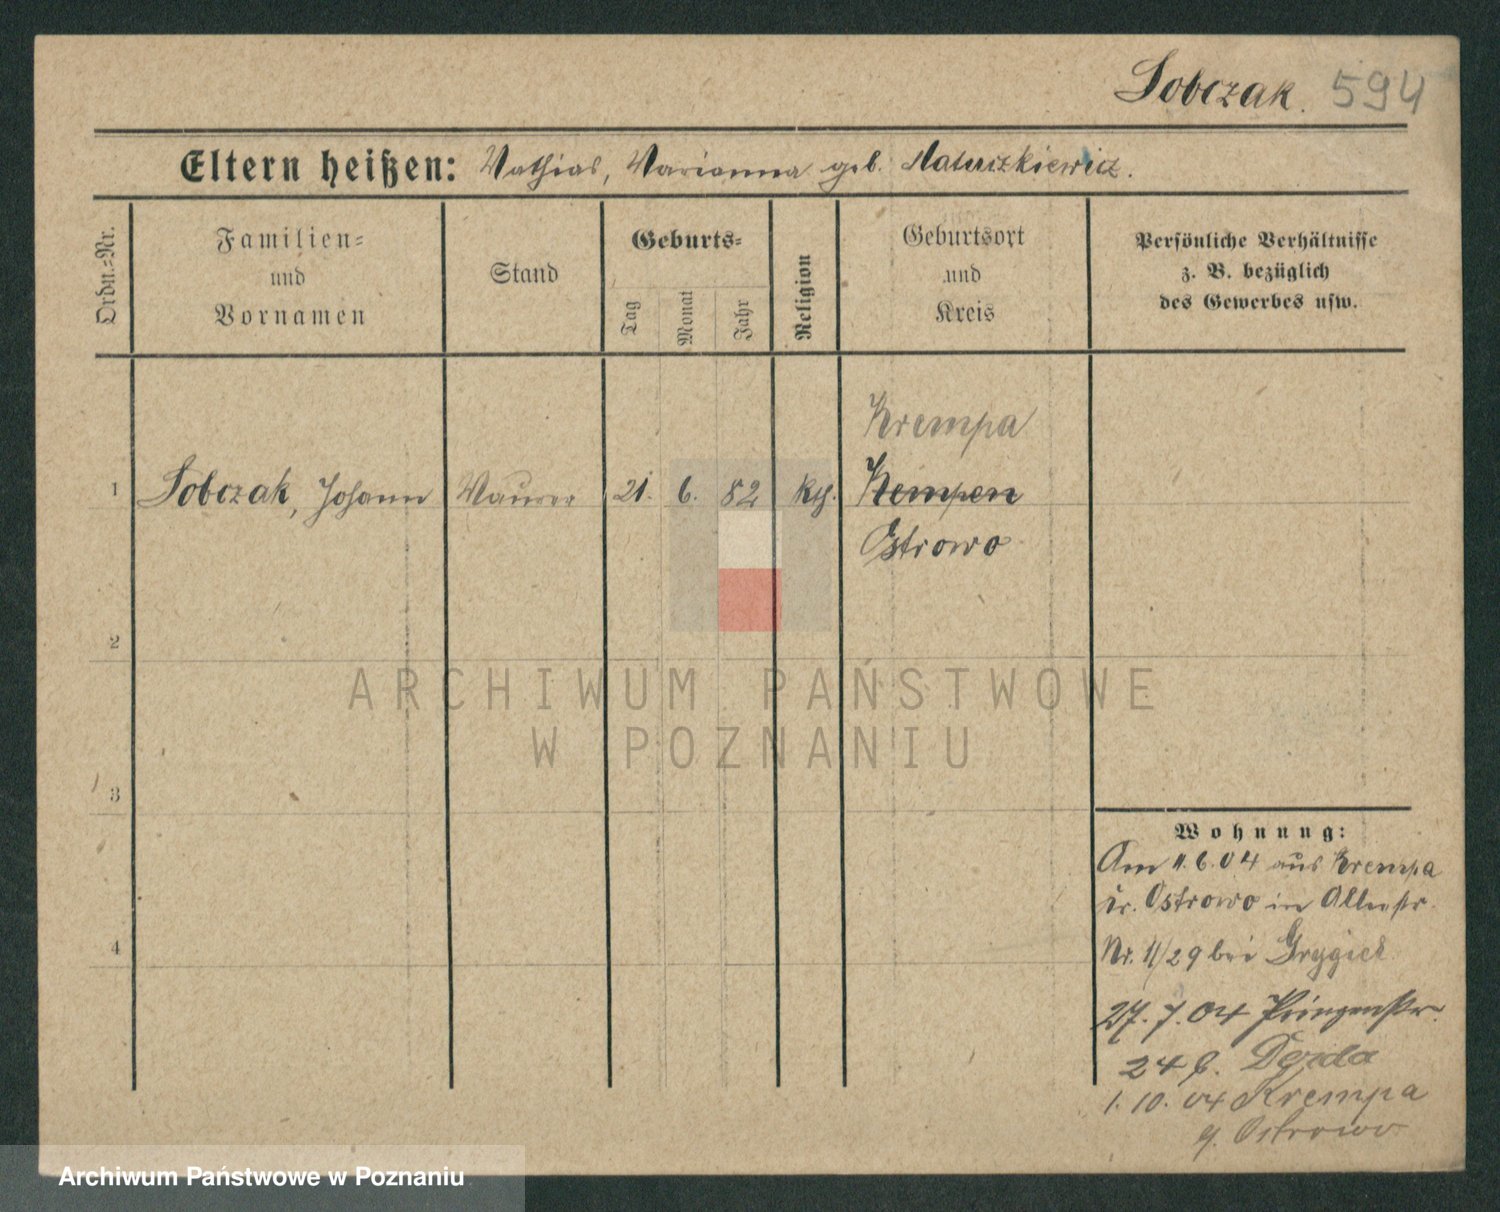 Sobczak. 594
Eltern heißen: Mathias, Marianna geb. Matuszkiewicz.
Ordn.=Nr.
Familien=
und
Vornamen
Stand
Geburts=
Tag
Monat
Jahr
Religion
Geburtsort
und
Kreis
Persönliche Verhältnisse
z. B. bezüglich
des Gewerbes usw.
Krempa
1 Sobczak, Johann Maurer 21. 6. 82 kth. Kempen
Ostrowo
2
ARCHIWUM PAŃSTWOWE
W POZNANIU
3
Wohnung:
Am 11.6.04 aus Krempa
Kr. Ostrowo in Allerstr.
4
Nr. 11/29 bei Grygiel
27. 7. 04 Prinzenstr.
24 b.
1. 10. 04 Krempa
Ostrowo
Archiwum Państwowe w Poznaniu